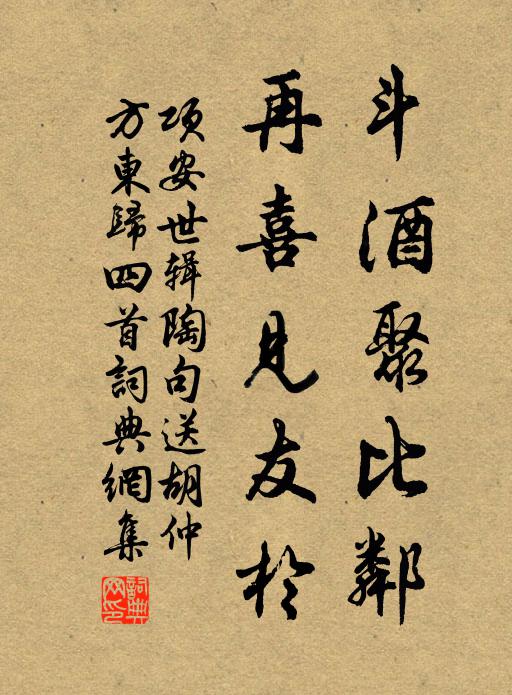 斗酒聚比鄰
再喜見友於
項安世辑陶句送胡仲
方東歸四首詞典網集
詞典网印